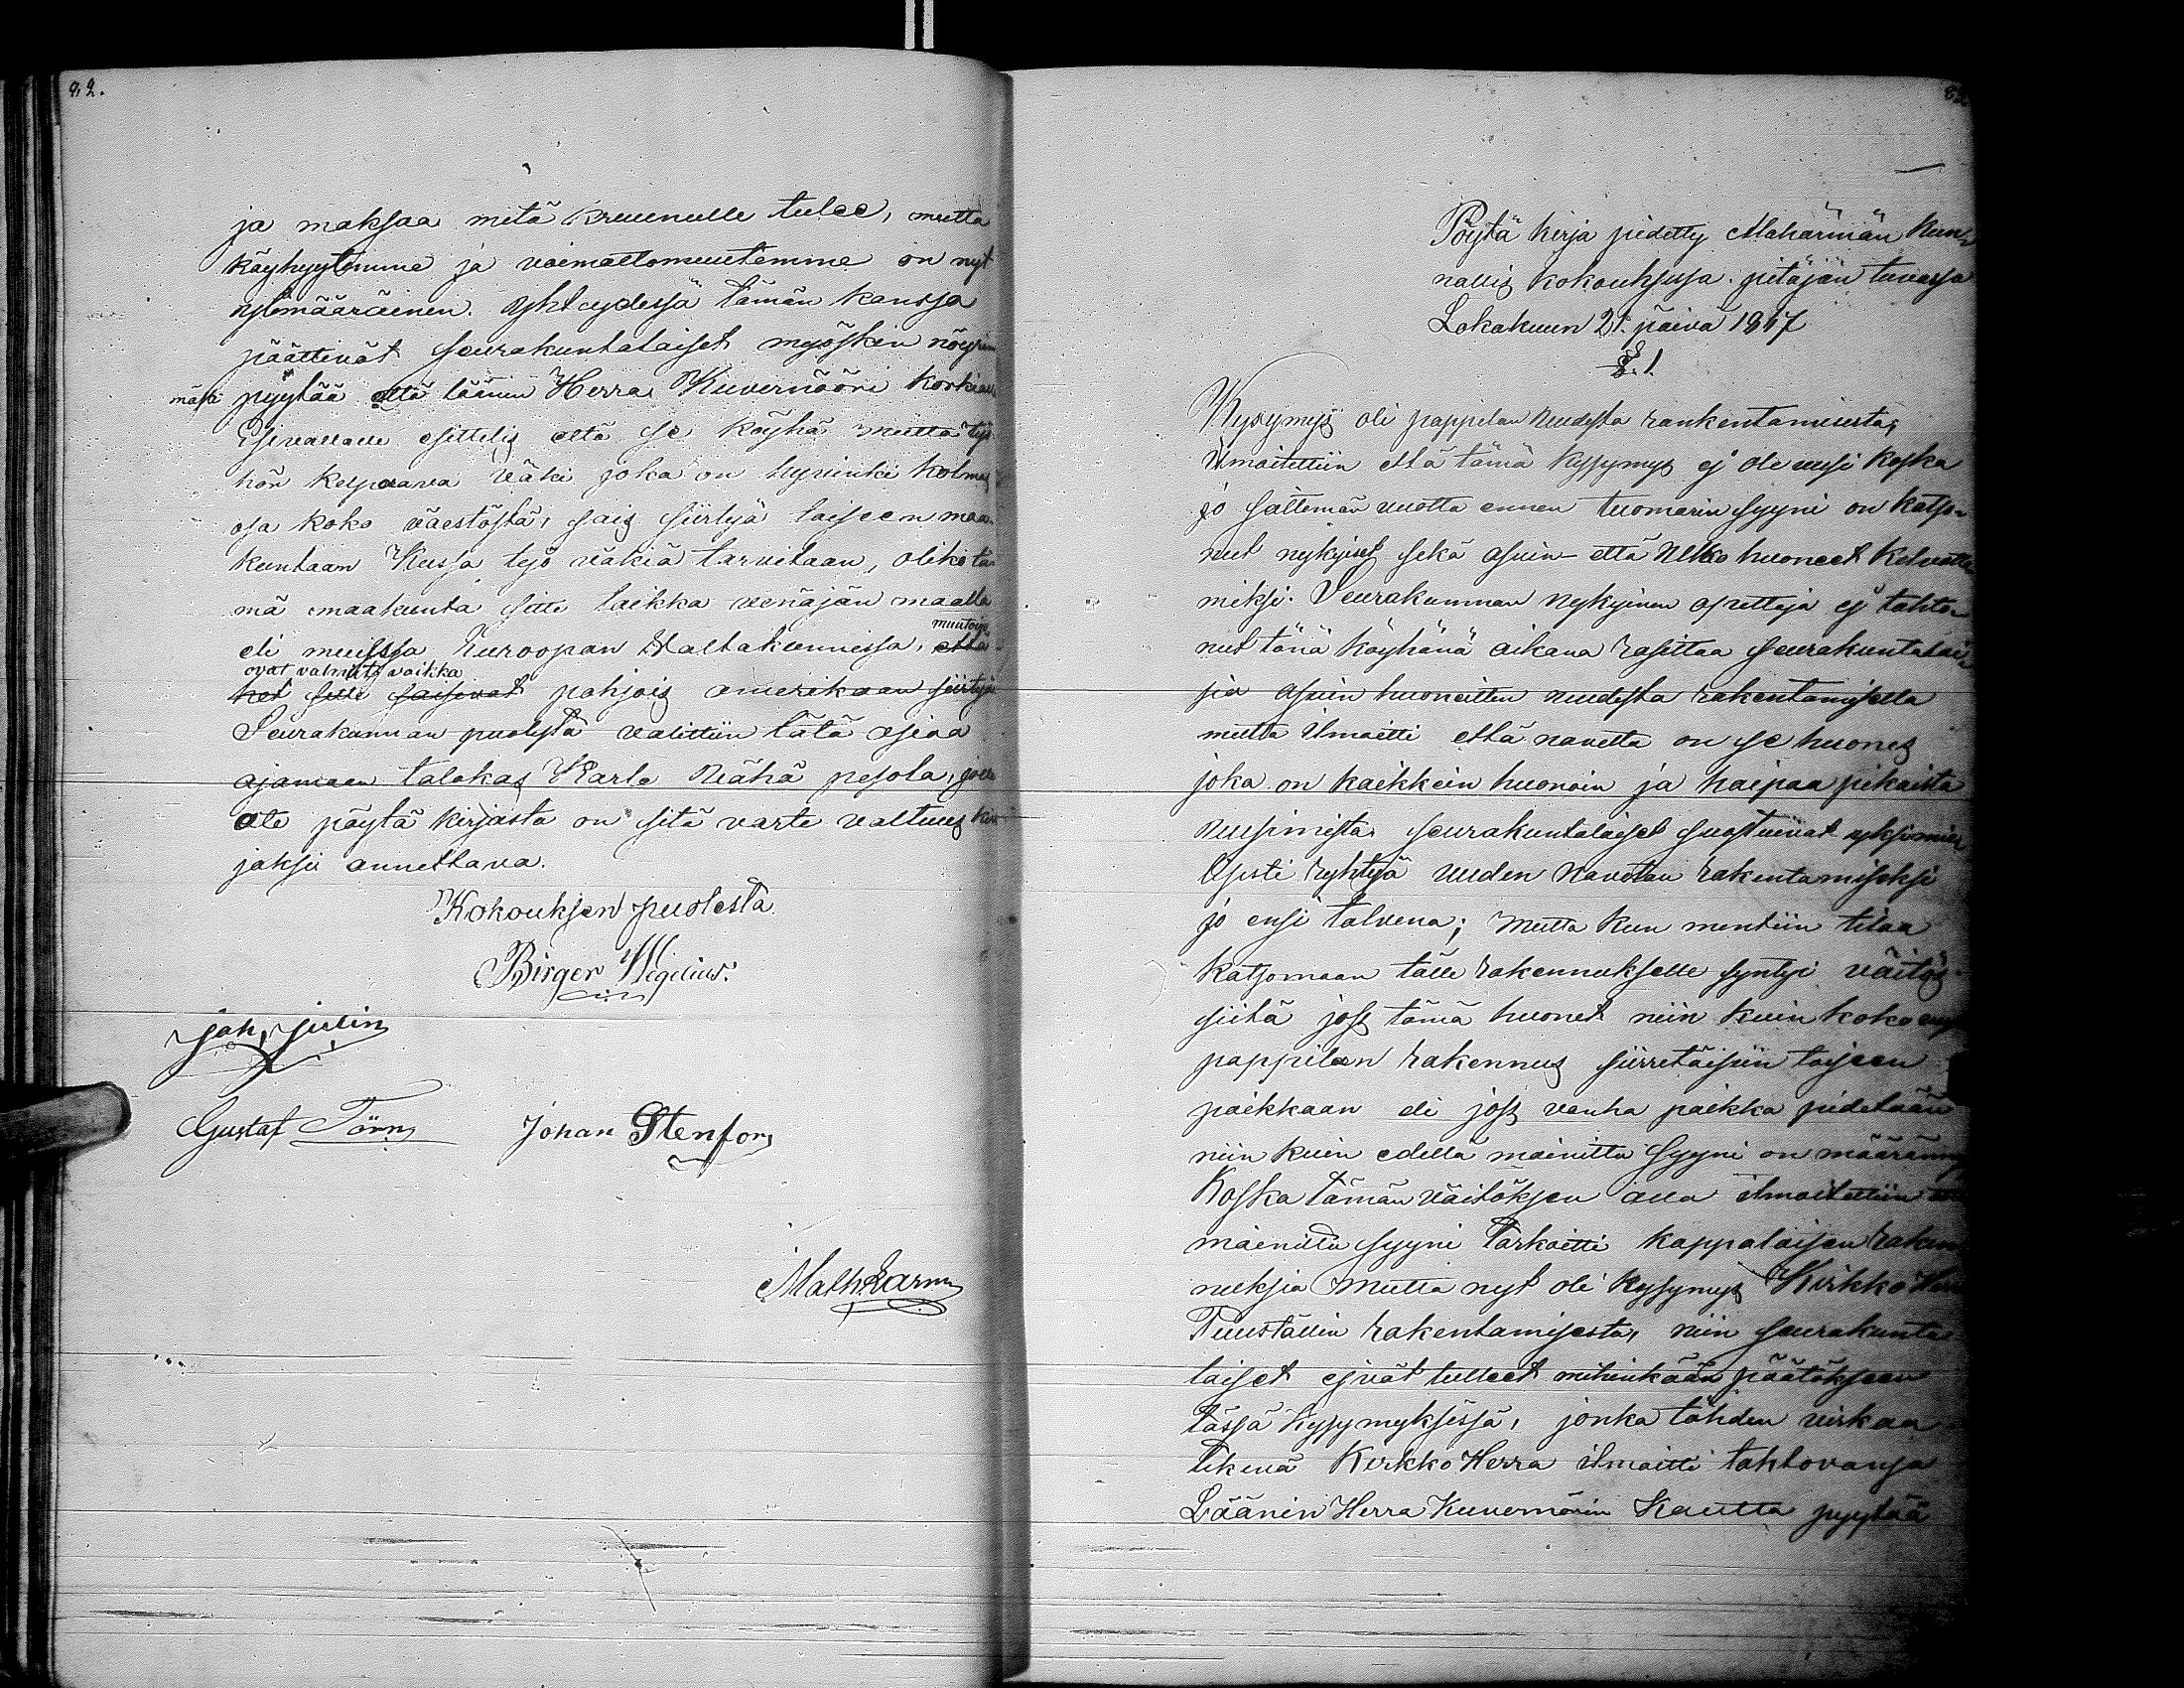 82.
ja maksaa mitä kruunulle tulee, mutta
käyhyytemme ja voimattomuutemme on nyt
ylömääräinen. Yhteydessä tämän kanssa
päättivät seurakuntalaiset myöskin nöyrim
mäst pyytää että läänin Herra Kuvernööri korkiall
Esivallalle esittelis että se köyhä mutta työ
hön kelpaava väki joka on hyvinki kolmas
osa koko väestöstä, sais siirtyä toiseen maa-
kuntaan Kussa työ väkiä tarvitaan, olikö tä-
mä maakunta sitte taikka venäjän maalla
muutoin
eli muissa Euroopan Waltakunnissa, että
ovat valmiit vaikka
het sitte saisivat pohjois amerikaan siirtyä
Seurakunnan puolesta valittiin tätä asiaa
ajamaan talokas Karle Wähä pesola, jolle
ote pöytä kirjasta on sitä varte valtuus kir
jaksi annettava.
Kokouksen puolesta
Birger Wegelius.
Joh, Julin
Gustaf Törn
Johan Stenfors
Math Larm
Pöytä kirja pidetty Alahärmän Kun-
nallis kokouksessa pitäjän tuvassa
Lokakuun 21. päivä 1867
§. 1.
Kysymys oli pappilan uudesta rankentamisesta;
Ilmoitettiin että tämä kysymys ej ole uusi koska
jo seitemän vuotta ennen tuomarin syyni on katso-
nut nykyiset sekä asuin- että ulko huoneet kelvotto
miksi. Seurakunnan nykyinen opettaja ej tahto-
nut tänä köyhänä aikana rasittaa seurakuntalai-
sia asuin huoneitten uudesta rakentamisella
mutta ilmoitti että navetta on se huones
joka on kaikkein huonoin ja kaipaa pikaista
uusimista. Seurakuntalaiset suostuivat yksimie-
lisesti ryhtyä uuden navetan rakentamiseksi
jo ensi talvena; mutta kun mentiin tilaa
katsomaan tälle rakennukselle syntyi väitös
siitä jos tämä huonet niin kuin koko uusi
pappilan rakennus siirretäisiin toiseen
paikkaan eli jos vanha paikka pidetään
niin kuin edellä mainittu syyni on määränny
Koska tämän väitöksen alla ilmoitettiin
mainittu syyni tarkoitti kappalaisen raken
nuksia mutta nyt oli kysymys Kirkko Herr
Puuställin rakentamisesta, niin seurakunta-
laiset ejvät tulleet mihinkään päätökseen
tässä kysymyksessä, jonka tähden virkaa
tekevä Kirkko Herra ilmoitti tahtovansa
Läänin Herra Kuvernörin kautta pyytää